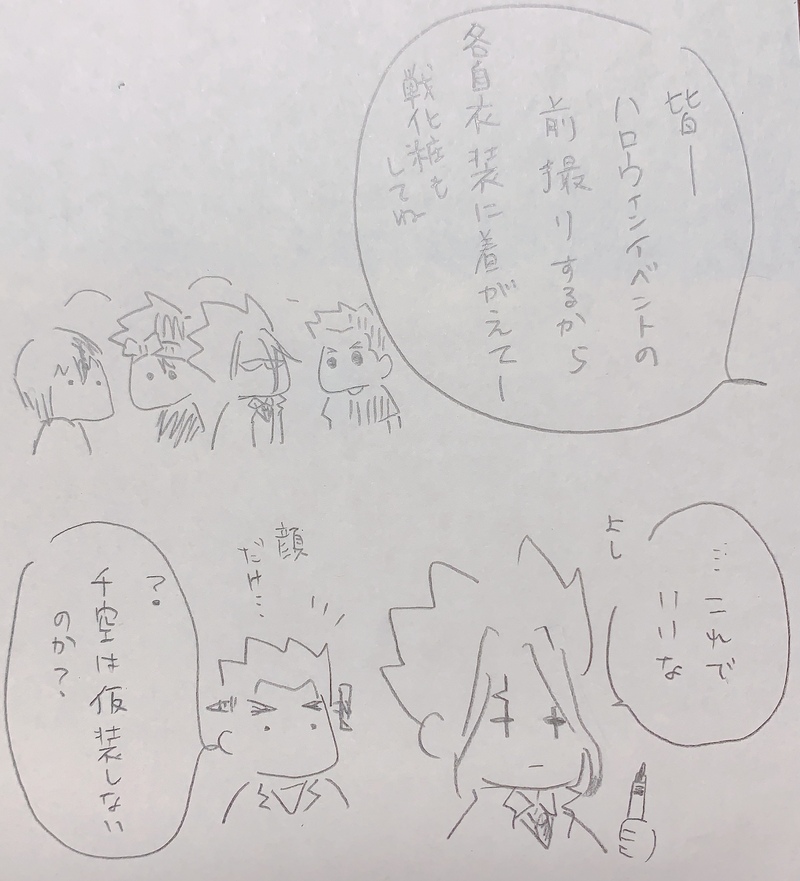 皆ー
ハロウィンイベントの
前撮りするから
各自衣装に着がえてー
戦化粧も
してね
よし
…これで
いいな
顔
だけ…
?
千空は仮装しない
のか?